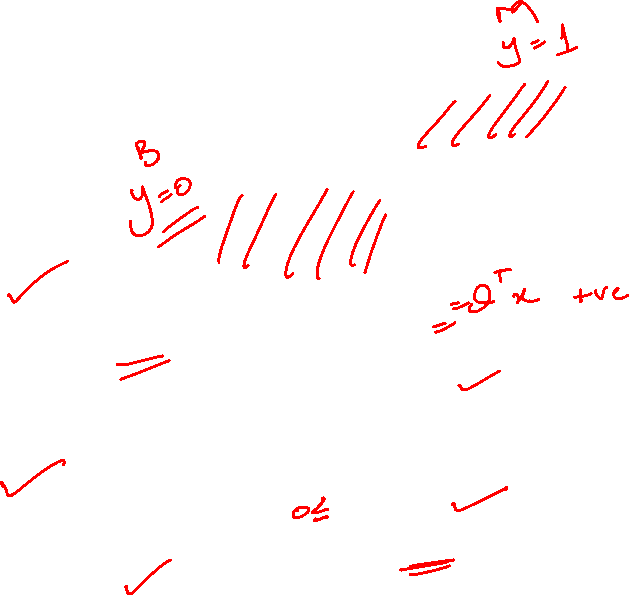 m
y = 1
B
y = 0
= θᵀx +ve
0 ≤